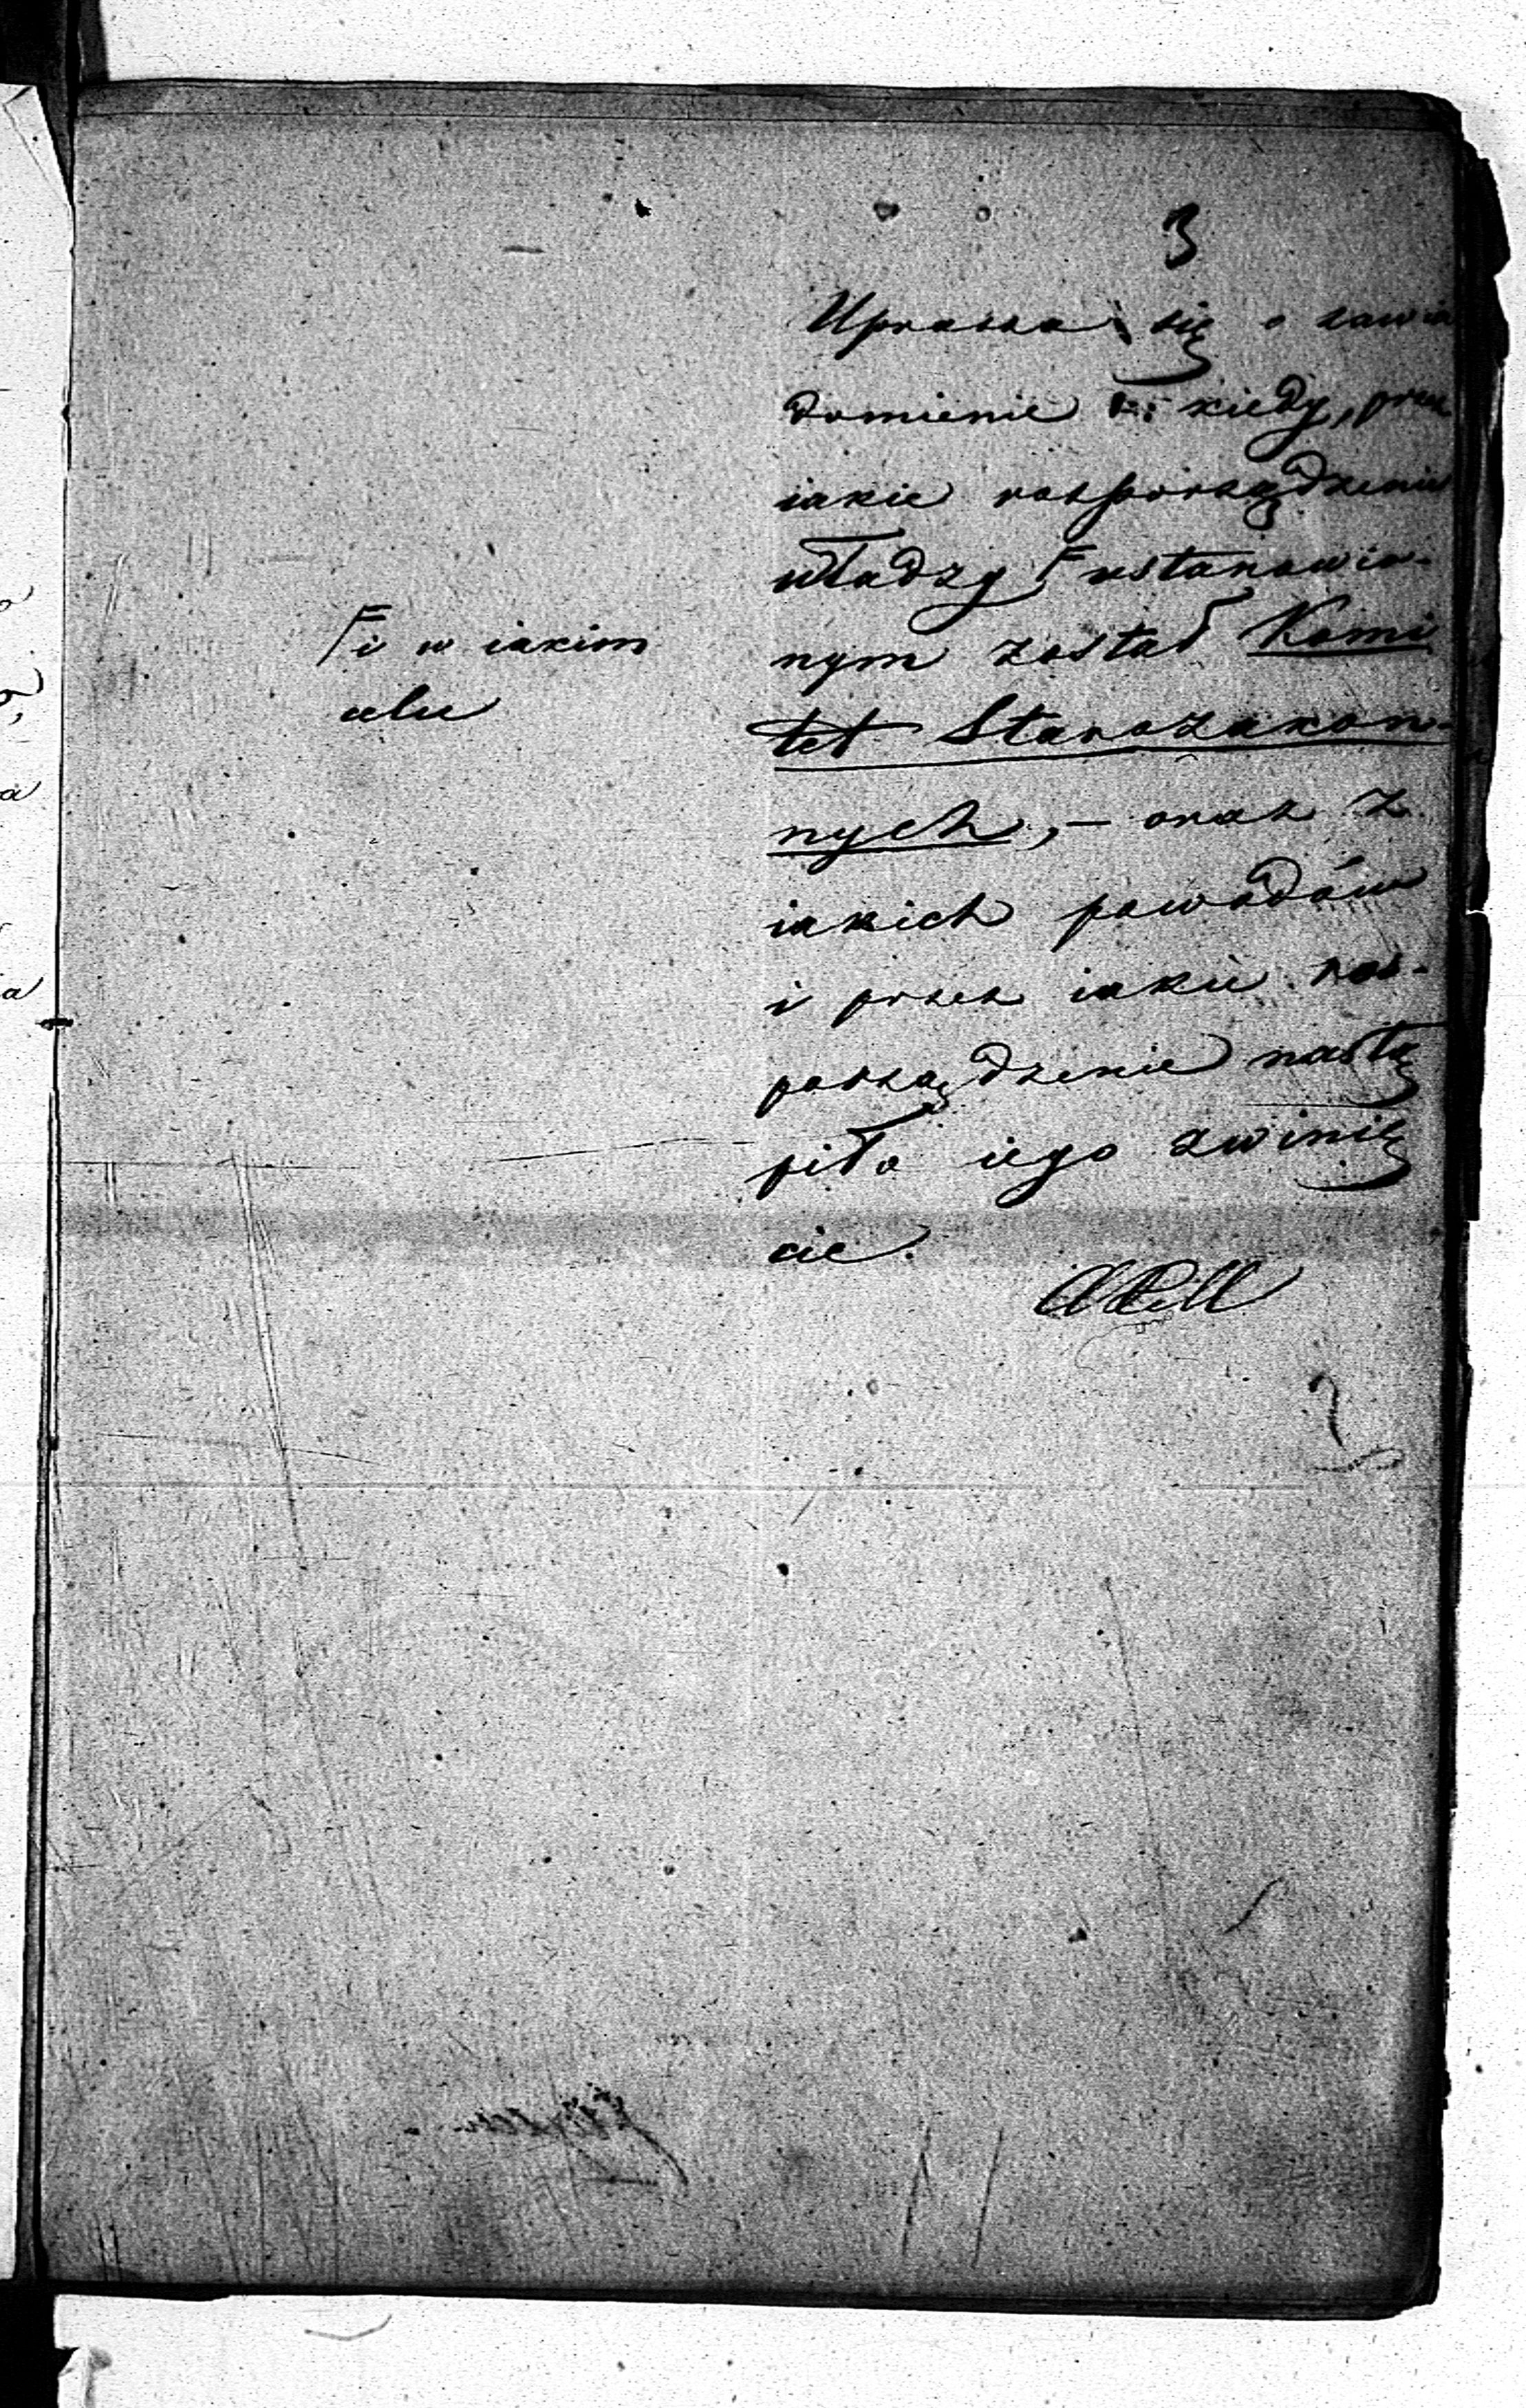 3
Uprasza się o zawia
domienie kiedy, przez
iakie rosporządzenie
władzy F ustanowio-
nym został Komi
tet Starozakon-
nych, – oraz z
iakich powodów
i przez iakie roz-
porządzenie nastą
piło iego zwinię
cie.
F i w iakim
celu